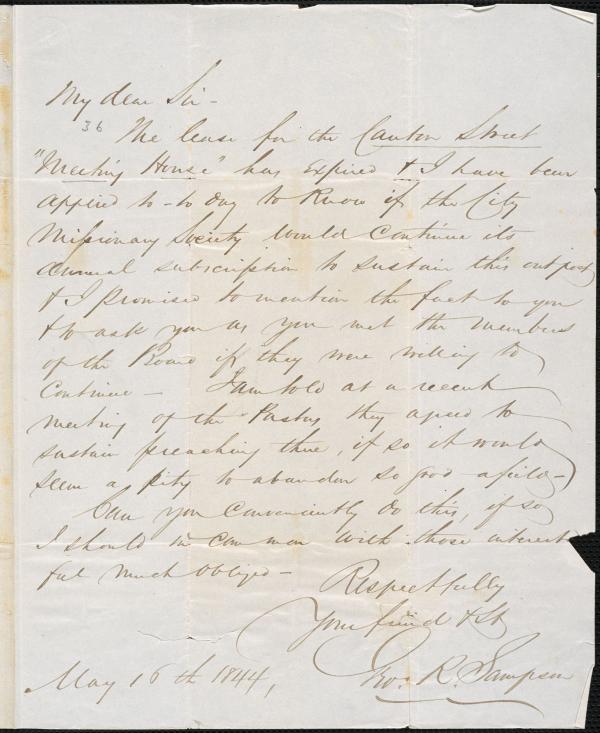 My dear Sir -
36
The lease for the Canton Street
"Meeting House" has expired & I have been
applied to - to day to know if the City
Missionary Society would continue its
annual subscription to sustain this outpost
& I promised to mention the fact to you
& to ask you as you met the members
of the Board if they were willing to
continue - I am told at a recent
meeting of the Pastors they agreed to
sustain preaching there, if so it would
seem a pity to abandon so good a field -
Can you conveniently do this, if so
I should in common with those interest
feel much obliged -
Respectfully
Your friend & St
Geo. R. Sampson
May 16th 1844,